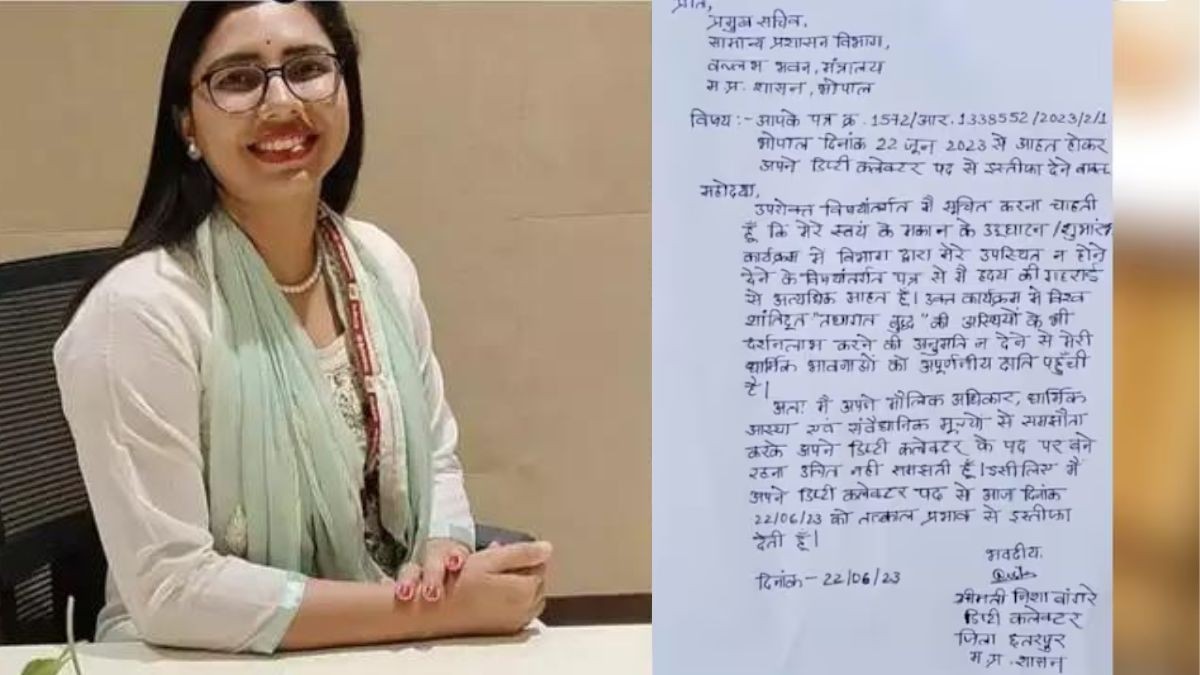 प्रति,
प्रमुख सचिव,
सामान्य प्रशासन विभाग,
वल्लभ भवन, मंत्रालय
म.प्र. शासन, भोपाल
विषय :- आपके पत्र क्र. 1572/आर. 1338552/2023/2/1
भोपाल दिनांक 22 जून 2023 से आहत होकर
अपने डिप्टी कलेक्टर पद से इस्तीफा देने बाबत
महोदया,
उपरोक्त विषयांतर्गत मैं सूचित करना चाहती
हूँ कि मेरे स्वयं के मकान के उद्घाटन /शुभारंभ
कार्यक्रम में विभाग द्वारा मेरे उपस्थित न होने
देने के विषयांतर्गत पत्र से मैं हृदय की गहराई
से अत्यधिक आहत हूँ। उक्त कार्यक्रम में विश्व
शांतिदूत "तथागत बुद्ध" की अस्थियों के भी
दर्शनलाभ करने की अनुमति न देने से मेरी
धार्मिक भावनाओं को अपूर्णनीय क्षति पहुँची
है।
अतः मैं अपने मौलिक अधिकार, धार्मिक
आस्था एवं संवैधानिक मूल्यों से समझौता
करके अपने डिप्टी कलेक्टर के पद पर बने
रहना उचित नहीं समझती हूँ। इसीलिए मैं
अपने डिप्टी कलेक्टर पद से आज दिनांक
22/06/23 को तत्काल प्रभाव से इस्तीफा
देती हूँ।
भवदीय.
दिनांक - 22/06/23
श्रीमती निशा बांगरे
डिप्टी कलेक्टर
जिला छतरपुर
म.प्र. शासन